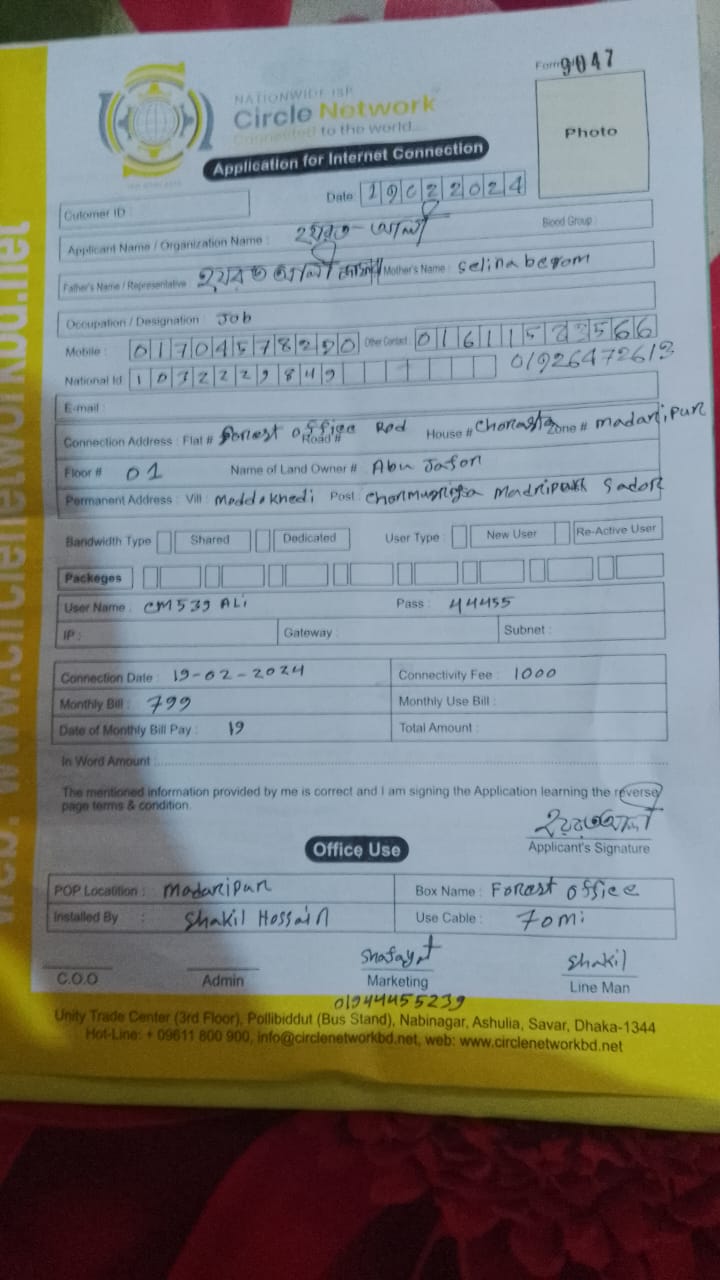 Form 9047
NATIONWIDE ISP
Circle Network
Connected to the world...
Application for Internet Connection
Photo
Date 19022024
Cutomer ID :
Applicant Name / Organization Name : হযরত আলী Blood Group :
Father's Name / Representative : হযরত আলী Mother's Name : Selina begom
Occupation / Designation : Job
Mobile : 01704578290 Other Contact : 01611583566
National Id 1032229849 01926472613
E-mail :
Connection Address : Flat # Forest office Road # Rod House # Chorasta Zone # madaripur
Floor # 01 Name of Land Owner # Abu Jafor
Permanent Address : Vill : Post : Sador
Bandwidth Type Shared Dedicated User Type : New User Re-Active User
Packeges
User Name : CM539 ALi Pass : 44455
IP : Gateway : Subnet :
Connection Date : 19-02-2024 Connectivity Fee : 1000
Monthly Bill : 799 Monthly Use Bill :
Date of Monthly Bill Pay : 19 Total Amount :
In Word Amount :
The mentioned information provided by me is correct and I am signing the Application learning the reverse
page terms & condition.
হযরত আলী
Applicant's Signature
Office Use
POP Locatition : Madaripur Box Name : Forest office
Installed By : Shakil Hossain Use Cable : 70mi
Shafayat Shakil
C.O.O Admin Marketing Line Man
01944455239
Unity Trade Center (3rd Floor), Pollibiddut (Bus Stand), Nabinagar, Ashulia, Savar, Dhaka-1344
Hot-Line: + 09611 800 900, info@circlenetworkbd.net, web: www.circlenetworkbd.net
web: www.circlenetworkbd.net